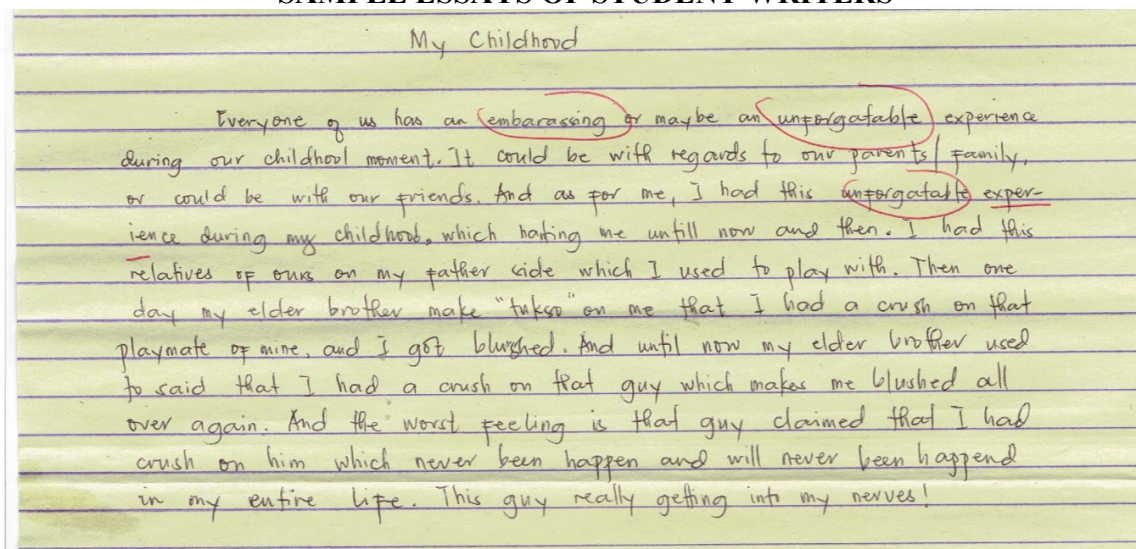 SAMPLE ESSAYS OF STUDENT WRITERS
My Childhood
Everyone of us has an embarassing or maybe an unforgatable experience
during our childhool moment. It could be with regards to our parents/family,
or could be with our friends. And as for me, I had this unforgatable exper-
ience during my childhood, which hating me untill now and then. I had this
relatives of ours on my father side which I used to play with. Then one
day my elder brother make "tukso" on me that I had a crush on that
playmate of mine, and I got blushed. And until now my elder brother used
to said that I had a crush on that guy which makes me blushed all
over again. And the worst feeling is that guy claimed that I had
crush on him which never been happen and will never been happend
in my entire life. This guy really getting into my nerves!